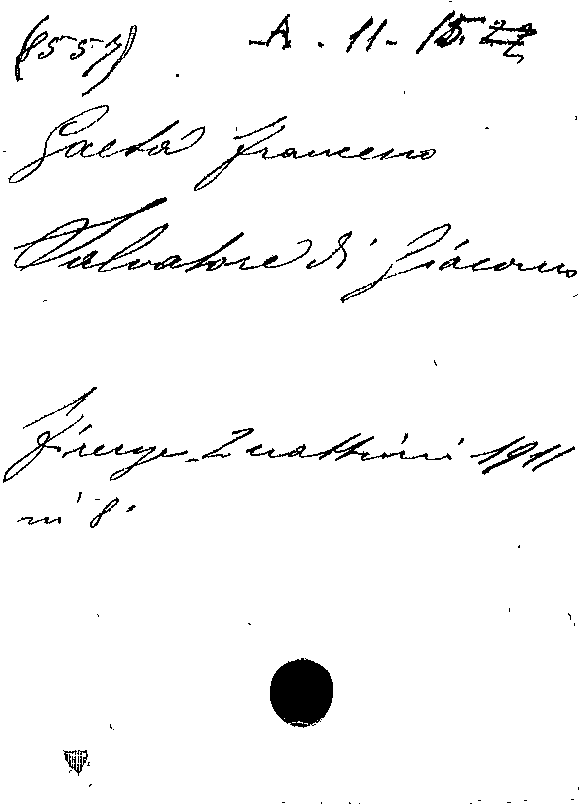 (8557) A. 11. 15
Gaeta Francesco
Salvatore di Giacomo
Firenze Quattrini 1911
in 8°